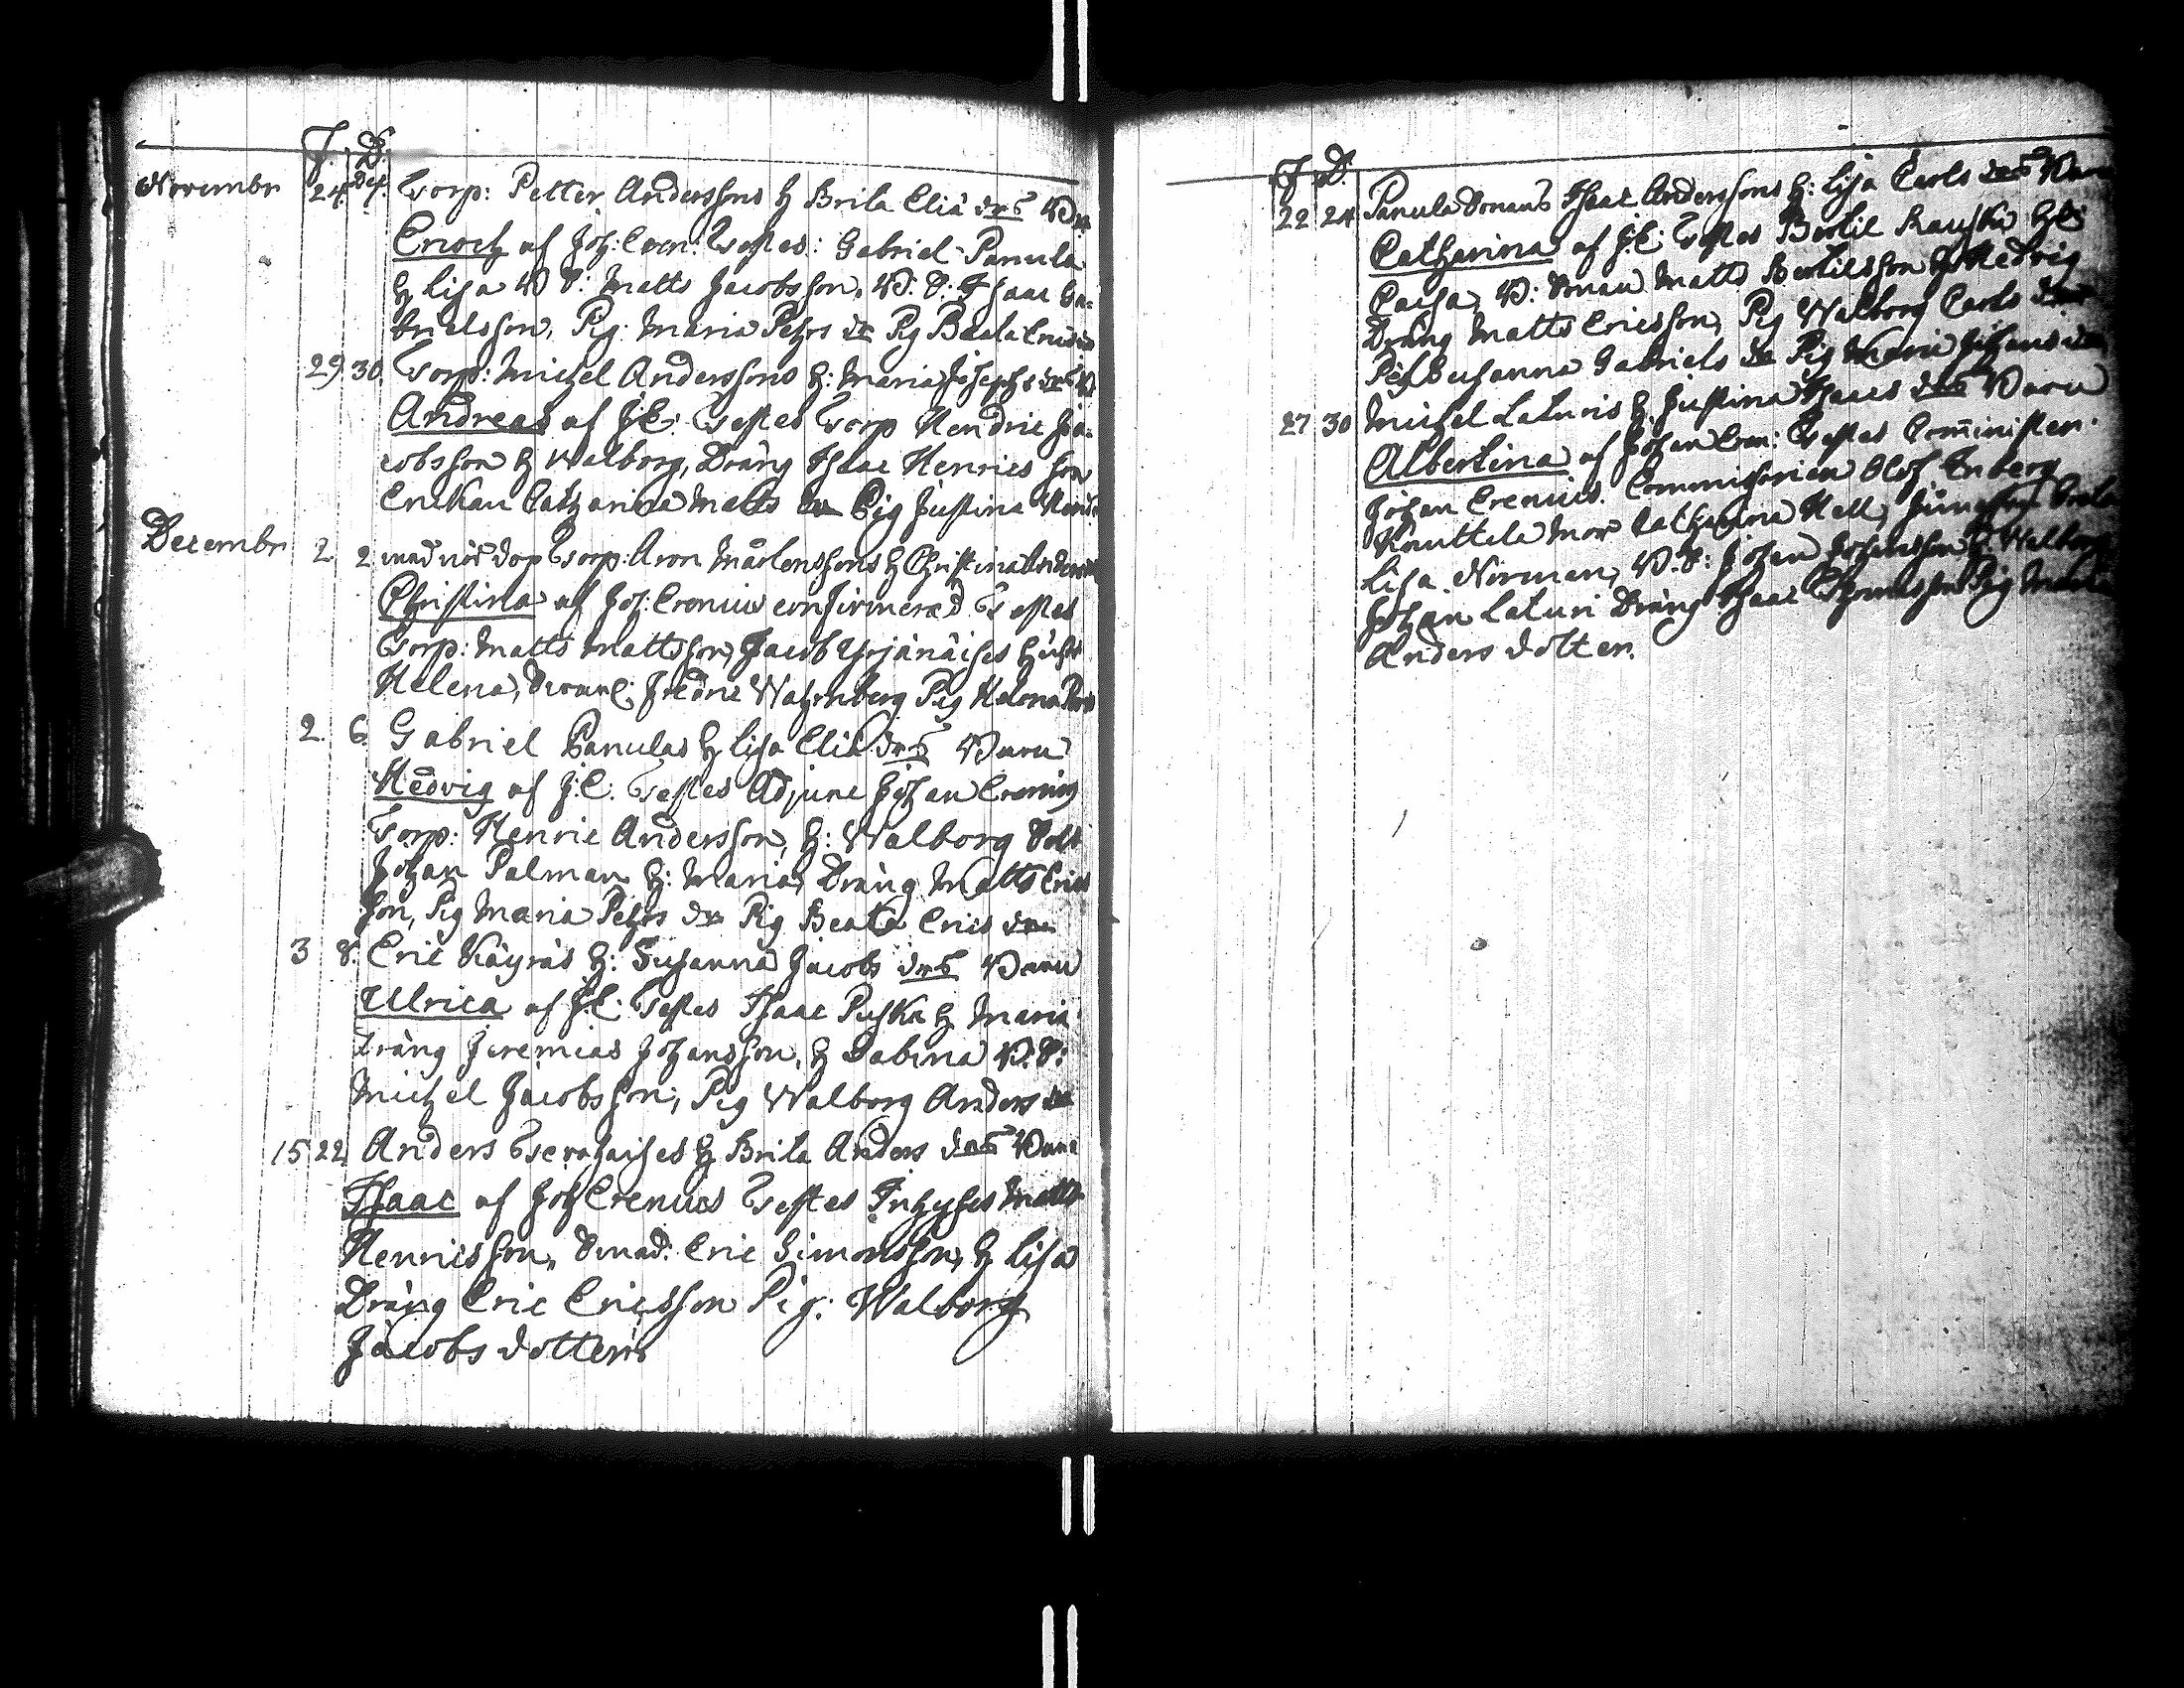 F. D.
Novembr 24. Torp: Petter Anderssons H Brita Eliæ drs
Enoch af Joh: Cren: Testes: Gabriel Panula
H Lisa D S: Matts Jacobsson, D. S: Isaac Ga-
brielsson, Pig: Maria Pehrs dr Pig Beata Erics
29 30. Torp: Michel Anderssons H: Maria Josephs drs
Andreas af J.C. Testes Torp Hendric Ja-
cobsson H Walborg, Dräng Isaac Henrics son
Enckan Catharina Matts dr Pig Justina
Decembr 2 2 med nöd dop Torp: Aron Mårtenssons H Christina
Christina af Joh: Crenius confirmerad Testes
Torp: Matts Mattsson, Jacob Yrjänäises
Helena, Fredric Wahrnberg Pig Helena
2. 6 Gabriel Panulas H Lisa Eliæ drs Barn
Hedvig af J.C. Testes Adjunc Johan Crenius
Torp: Henric Andersson, H: Walborg Sold
Johan Palman H: Maria, Dräng Matts Erics
son, Pig Maria Pehrs dr Pig Beata Erics dr
3 8. Eric Käyräs H: Susanna Jacobs drs Barn
Ulrica af J.C. Testes Isaac Puska H Maria
Dräng Jeremias Johansson, H Sabina D. S:
Michel Jacobsson, Pig Walborg Anders dr
15 22. Anders H Brita Anders drs Barn
Isaac af Joh Crenius Testes Inhyses Matts
Henricsson, Eric Simonsson, H Lisa
Dräng Eric Ericsson Pig: Walborg
Jacobs dotter
F D.
22 24 Panula Sonens Isaac Anderssons H: Lisa Carls drs Barn
Catharina af J.C. Testes Bertil Rauska H
Caisa, D: Sonen Matts Bertilsson H Hedvig
Dräng Matts Ericsson, Pig Walborg Carls dr
Pig Susanna Gabriels dr Pig Maria Johans dr
27 30 Michel Laturis H. Justina Isaacs drs Barn
Albertina af Johan Cren: Testes Comministern
Johan Crenius. Commissarien Olof Enberg
Knuttila Mor Catharina Hell,
Lisa Norman, D. S: Johan Johansson H: Walborg
Johan Laturi Dräng Isaac Thomasson Pig Maria
Anders dotter.